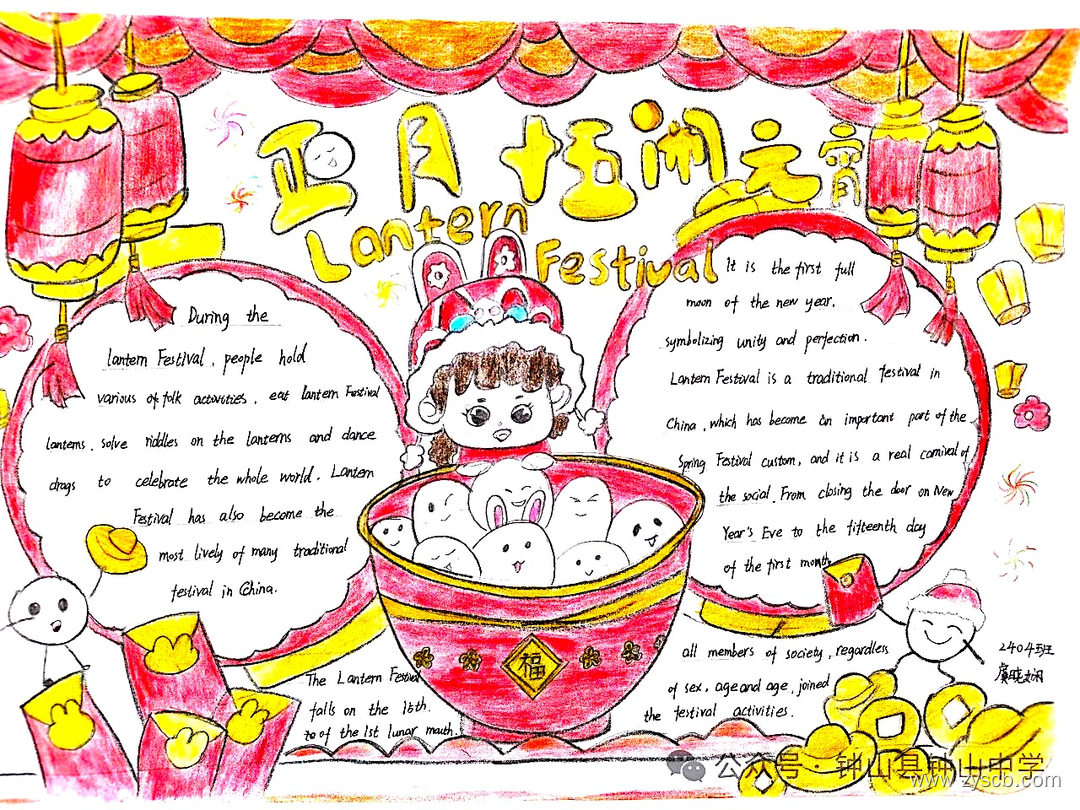 正月十五闹元宵
Lantern
Festival
During the
lantern Festival, people hold
various of folk activities, eat lantern Festival
lantems, solve riddles on the lanterns and dance
drags to celebrate the whole world. Lantern
Festival has also become the
most lively of many traditional
festival in China.
The Lantern Festival
falls on the 15th.
to of the 1st lunar mauth.
It is the first full
moon of the new year,
symbolizing unity and perfection.
Lantern Festival is a traditional festival in
China, which has become an important part of the
Spring Festival custom, and it is a real carnival of
the social. From closing the door on New
Year's Eve to the fifteenth day
of the first month
all members of society, regardless
of sex, age and age, joined
the festival activities.
福
2404班
公众号·钟山县钟山中学
www.zyscb.com